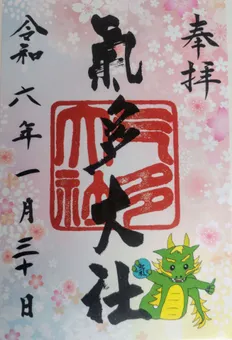 奉拝
氣多大社
氣多
大社
令和六年一月三十日
氣